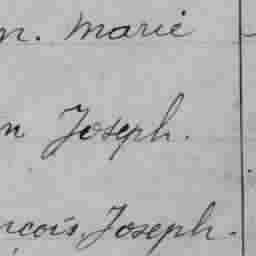 n. Marie
n Joseph.
nçois Joseph.